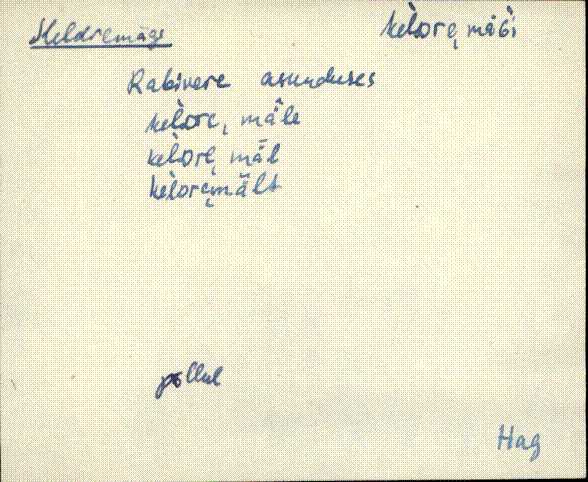 Keldremägi kèlDre̜mäGi
Rabivere asunduses
kèlDre̜mäle
kèlDre̜mäl
kèlDre̜mält
põllul
Hag